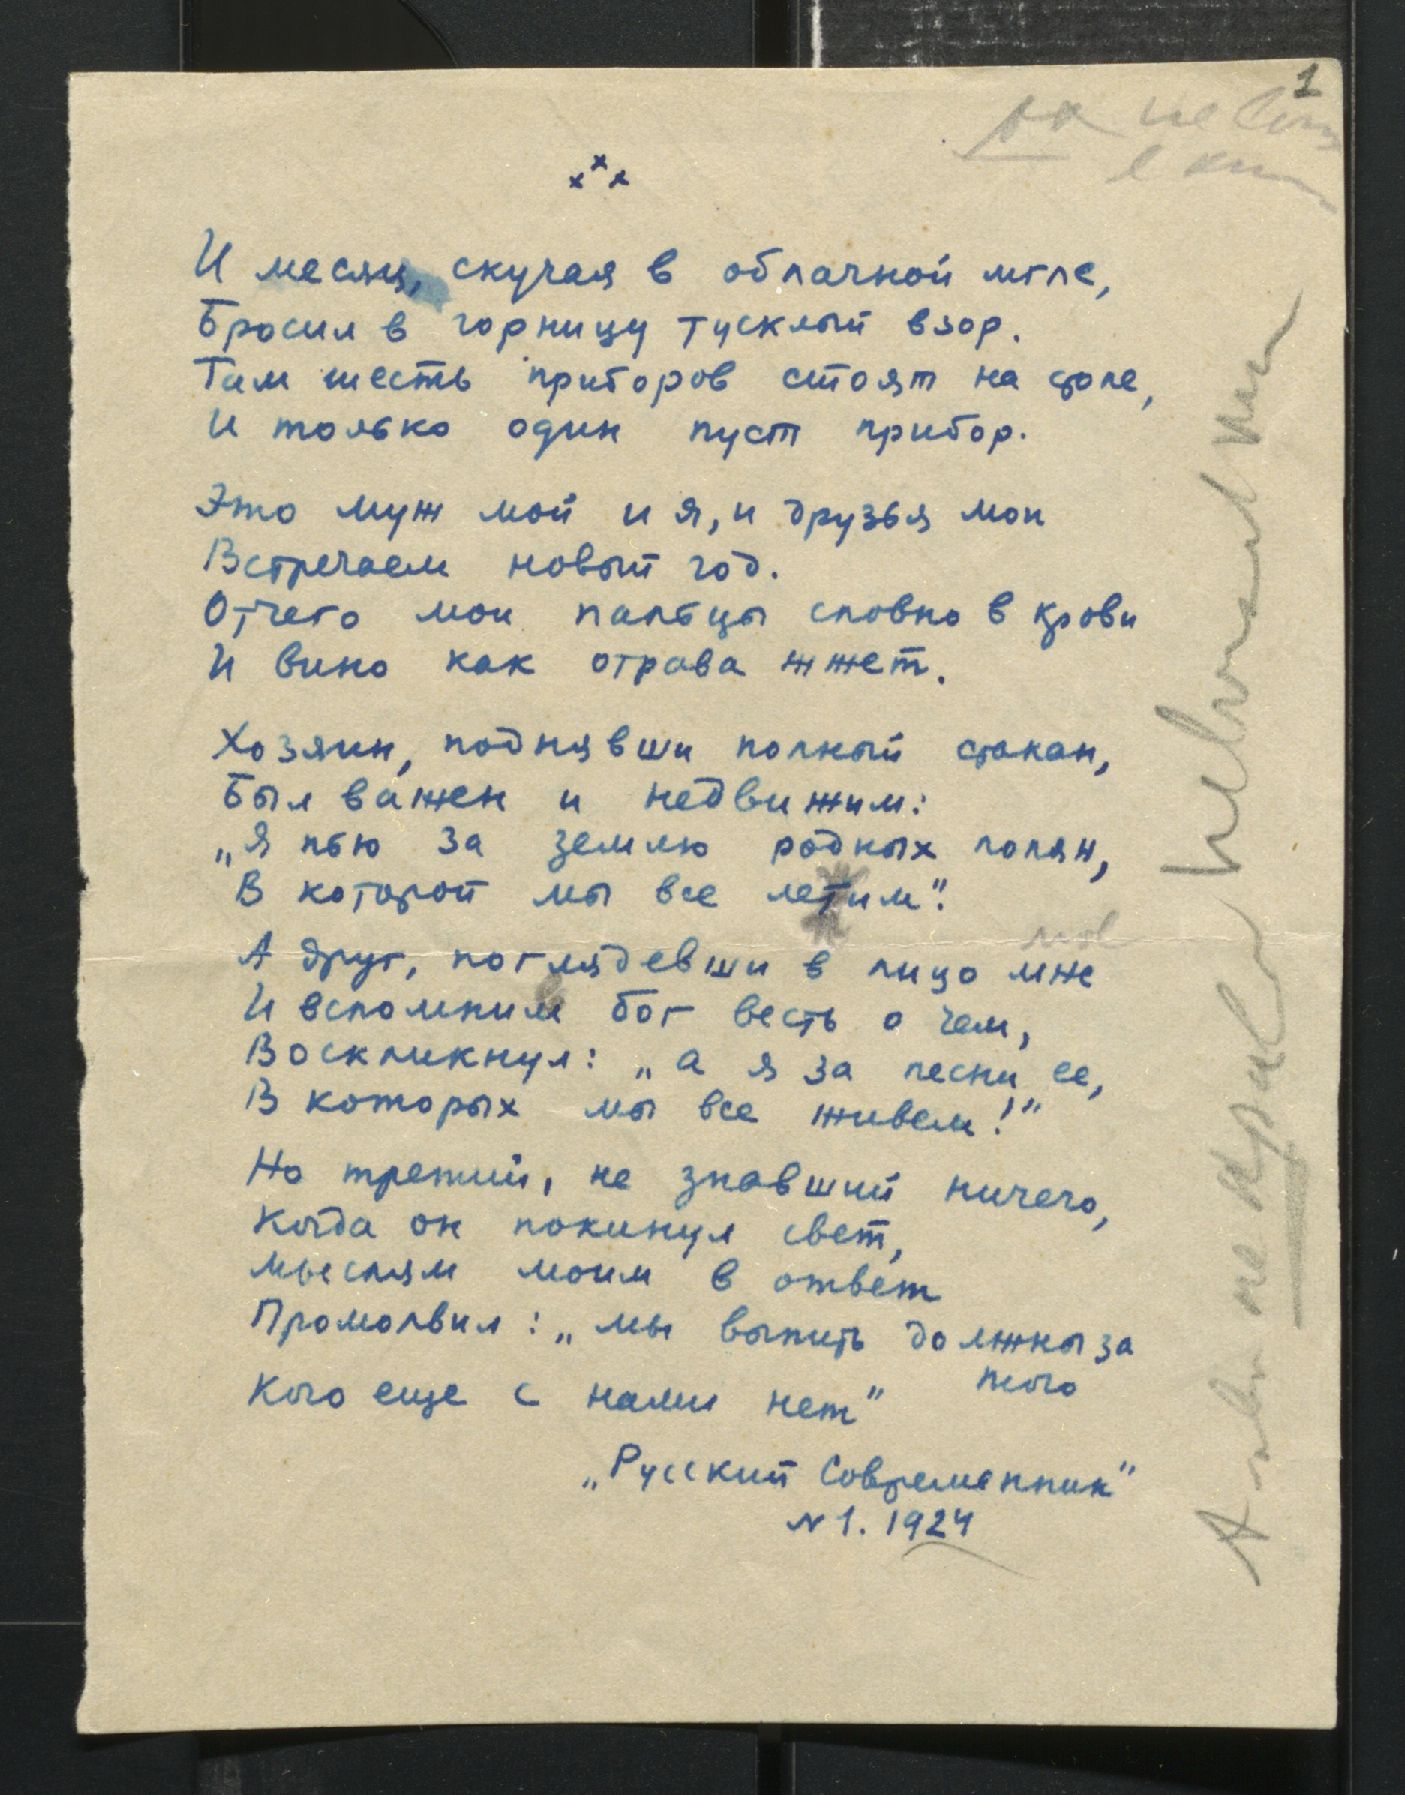 1
x x x
И месяц, скучая в облачной мгле,
Бросил в горницу тусклый взор.
Там шесть приборов стоят на столе,
И только один пуст прибор.
Это муж мой и я, и друзья мои
Встречаем новый год.
Отчего мои пальцы словно в крови
И вино как отрава жжет.
Хозяин, поднявши полный стакан,
Был важен и недвижим:
„Я пью за землю родных полян,
В которой мы все летим".
А друг, поглядевши в лицо мне
И вспомнив бог весть о чем,
Воскликнул: „а я за песни ее,
В которых мы все живем!"
Но третий, не знавший ничего,
Когда он покинул свет,
Мыслям моим в ответ
Промолвил: „мы выпить должны за
того
Кого еще с нами нет"
„Русский Современник"
N 1. 1924